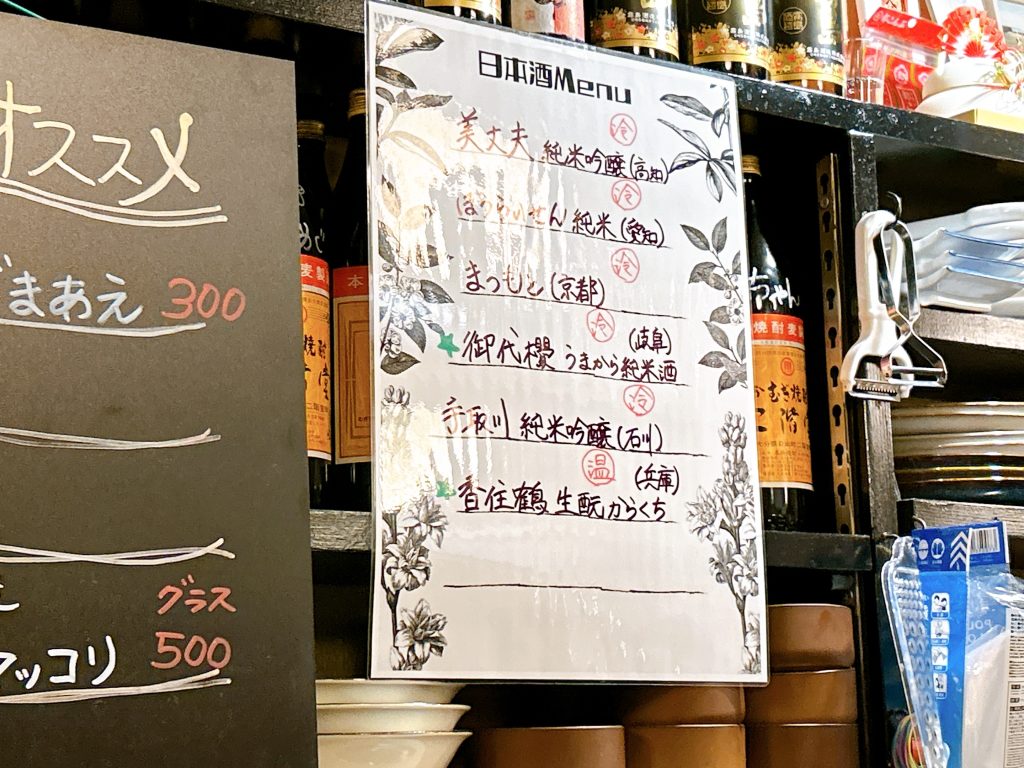 オススメ
ごまあえ 300
グラス
マッコリ 500
日本酒Menu
冷
美丈夫 純米吟醸(高知)
冷
ほうらいせん 純米(愛知)
冷
まつもと(京都)
冷
(岐阜)
御代櫻 うまから純米酒
冷
手取川 純米吟醸(石川)
温
(兵庫)
香住鶴 生酛からくち
麦製
本
焼酎
ちゃん
焼酎麦製
むぎ焼酎
二階